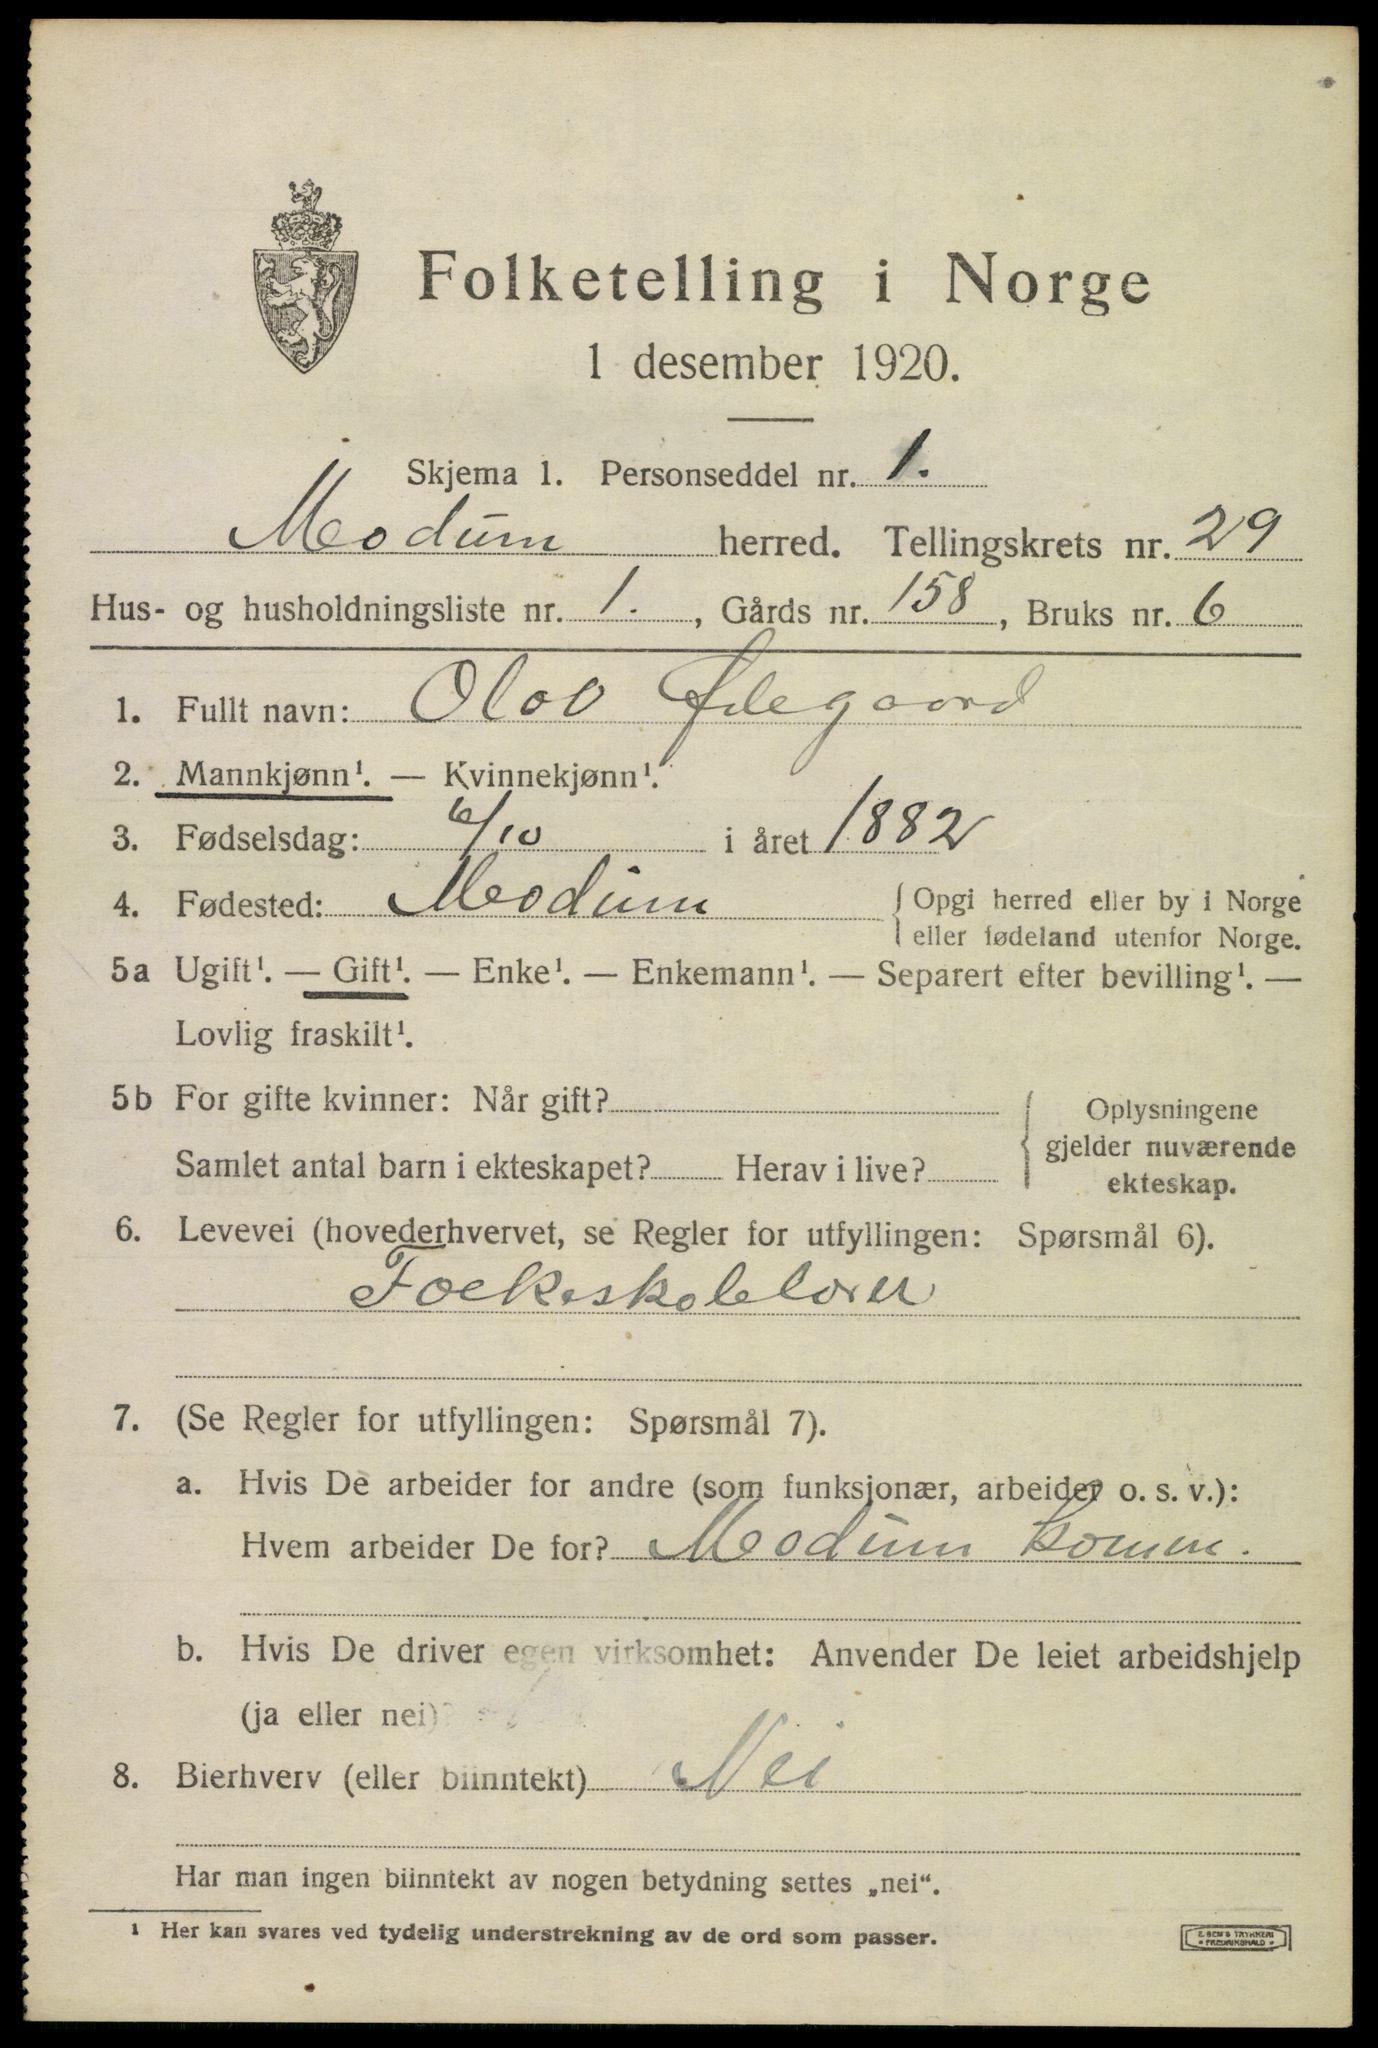 Folketelling i Norge
1 desember 1920.
Skjema 1. Personseddel nr. 1.
Modum herred. Tellingskrets nr. 29
Hus- og husholdningsliste nr. 1., Gårds nr. 158, Bruks nr. 6
1. Fullt navn: Olav Ødegaard
2. Mannkjønn¹. — Kvinnekjønn¹.
3. Fødselsdag: 6/10 i året 1882
4. Fødested: Modum { Opgi herred eller by i Norge
eller fødeland utenfor Norge.
5a Ugift¹. — Gift¹. — Enke¹. — Enkemann¹. — Separert efter bevilling¹. —
Lovlig fraskilt¹.
5b For gifte kvinner: Når gift? { Oplysningene
gjelder nuværende
Samlet antal barn i ekteskapet? Herav i live? ekteskap.
6. Levevei (hovederhvervet, se Regler for utfyllingen: Spørsmål 6).
Folkeskolelærer
7. (Se Regler for utfyllingen: Spørsmål 7).
a. Hvis De arbeider for andre (som funksjonær, arbeider o. s. v.):
Hvem arbeider De for? Modum komm.
b. Hvis De driver egen virksomhet: Anvender De leiet arbeidshjelp
(ja eller nei)?
8. Bierhverv (eller biinntekt) Nei
Har man ingen biinntekt av nogen betydning settes „nei“.
¹ Her kan svares ved tydelig understrekning av de ord som passer.
E. SEM'S TRYKKERI
• FREDRIKSHALD •